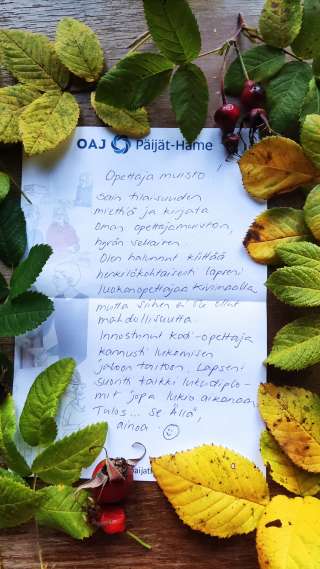 OAJ Päijät-Häme
Opettaja muisto
Sain tilaisuuden
miettiä ja kirjata
oman opettajamuiston,
hyvän sellaisen.
Olen halunnut kiittää
henkilökohtaisesti lapseni
luokanopettajaa
mutta siihen ei
mahdollisuutta.
Innostunut -opettaja
kannusti lukemisen
jaloon taitoon. Lapseni
suoritti kaikki lukudiplo-
mit jopa lukio aikanaan.
Tulos... se
ainoa.